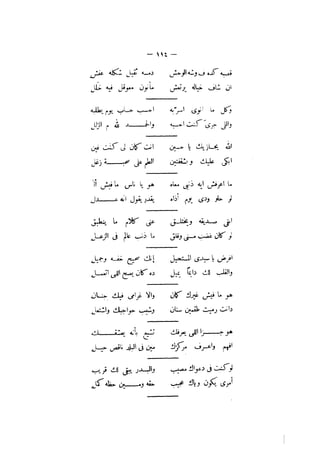 — ١١٤ —
قصبه كده ف وشه الوحش دمـه ثقيل شكله عفش
ان شاف خياله يرتعش مأبون موقول فيه خلل
وكل ما انوى اسرّ له احسب حساب يوم بطله
واللى جرى كنت احسبه والحمـد لله م الزلل
الله يجازيك يا حسين انت كان لى كنت فين
ابكى عليك وشفتين الطم على زغل
ما اعرفش ايه ذنبى معاه هو يا ناس ما فيش أذا
لو حلو ودى يوم أذاه يقدر يقول انه عـدل
انى صديقه ويختلـق عنى كلام ما ينطبق
لو كان غضب منى وفلق ما ذنب عالم فى الزعل
افرض يا سيدى المستحيل إنك صحيح خفـه وجميل
والقلب لك دايماً يميل ده كان يصح اللى انعمـل
هو ما فيش غيرك كان والا غرامى فيك جنـان
دانت رميت ظلمين سنان وشيب حواجبك واشتعل
هو جـزا اللى يعرفك تشيع بأنه يعشقـك
افهم واعرف مركزك مين فى البلد ناقص حيـل
لو كنت فى دعواك مصيب والبـدر يبقى لك قريب
أمرى يكون وياك عجيب حقه ومـين حظه كمل